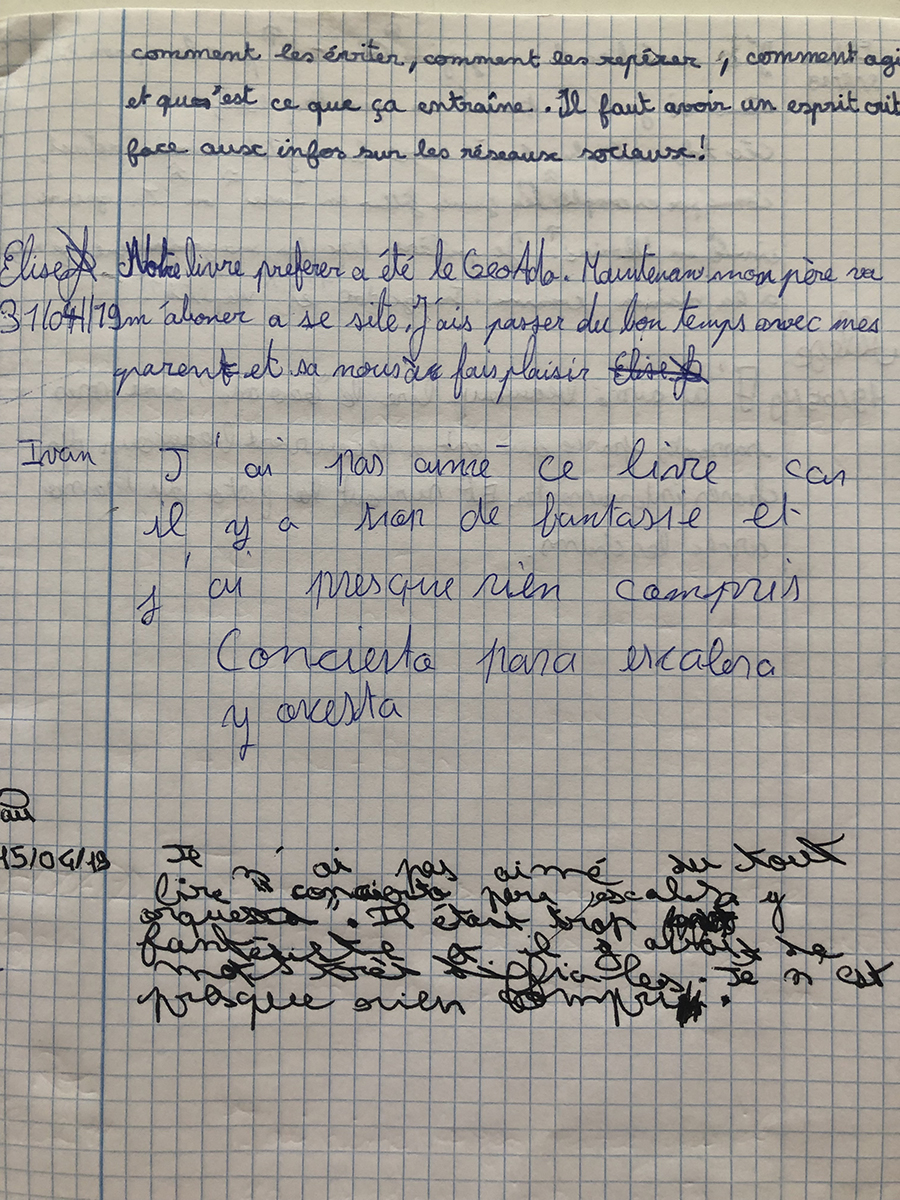 comment les éviter, comment les repérer, comment agi
et ques'est ce que ça entraîne. Il faut avoir un esprit crit
face aux infos sur les réseaux sociaux!
Elise Notre livre preferer a été le GeoAdo. Maintenan mon père va
31/04/19 m'aboner a se site. J'ais passer du bon temps avec mes
parent et sa nous a fais plaisir Elise
Ivan J'ai pas aimé ce livre car
il y a trop de fantasie et
j'ai presque rien compris
Concierto para escalera
y orcesta
15/04/19 Je n'ai pas aimé du tout
lire "concierto pere escalra y
orquesta". Il était trop
fantésiste et il y avait de
mots très difficiles. Je n'est
presque rien compri.